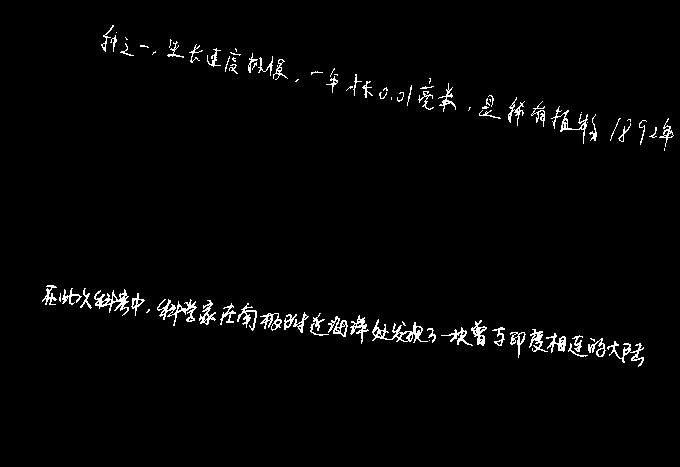 种之一，生长速度极慢，一年长0.01毫米，是稀有植物 1892年
在此次科考中，科学家在南极附近海洋处发现了一块曾与印度相连的大陆